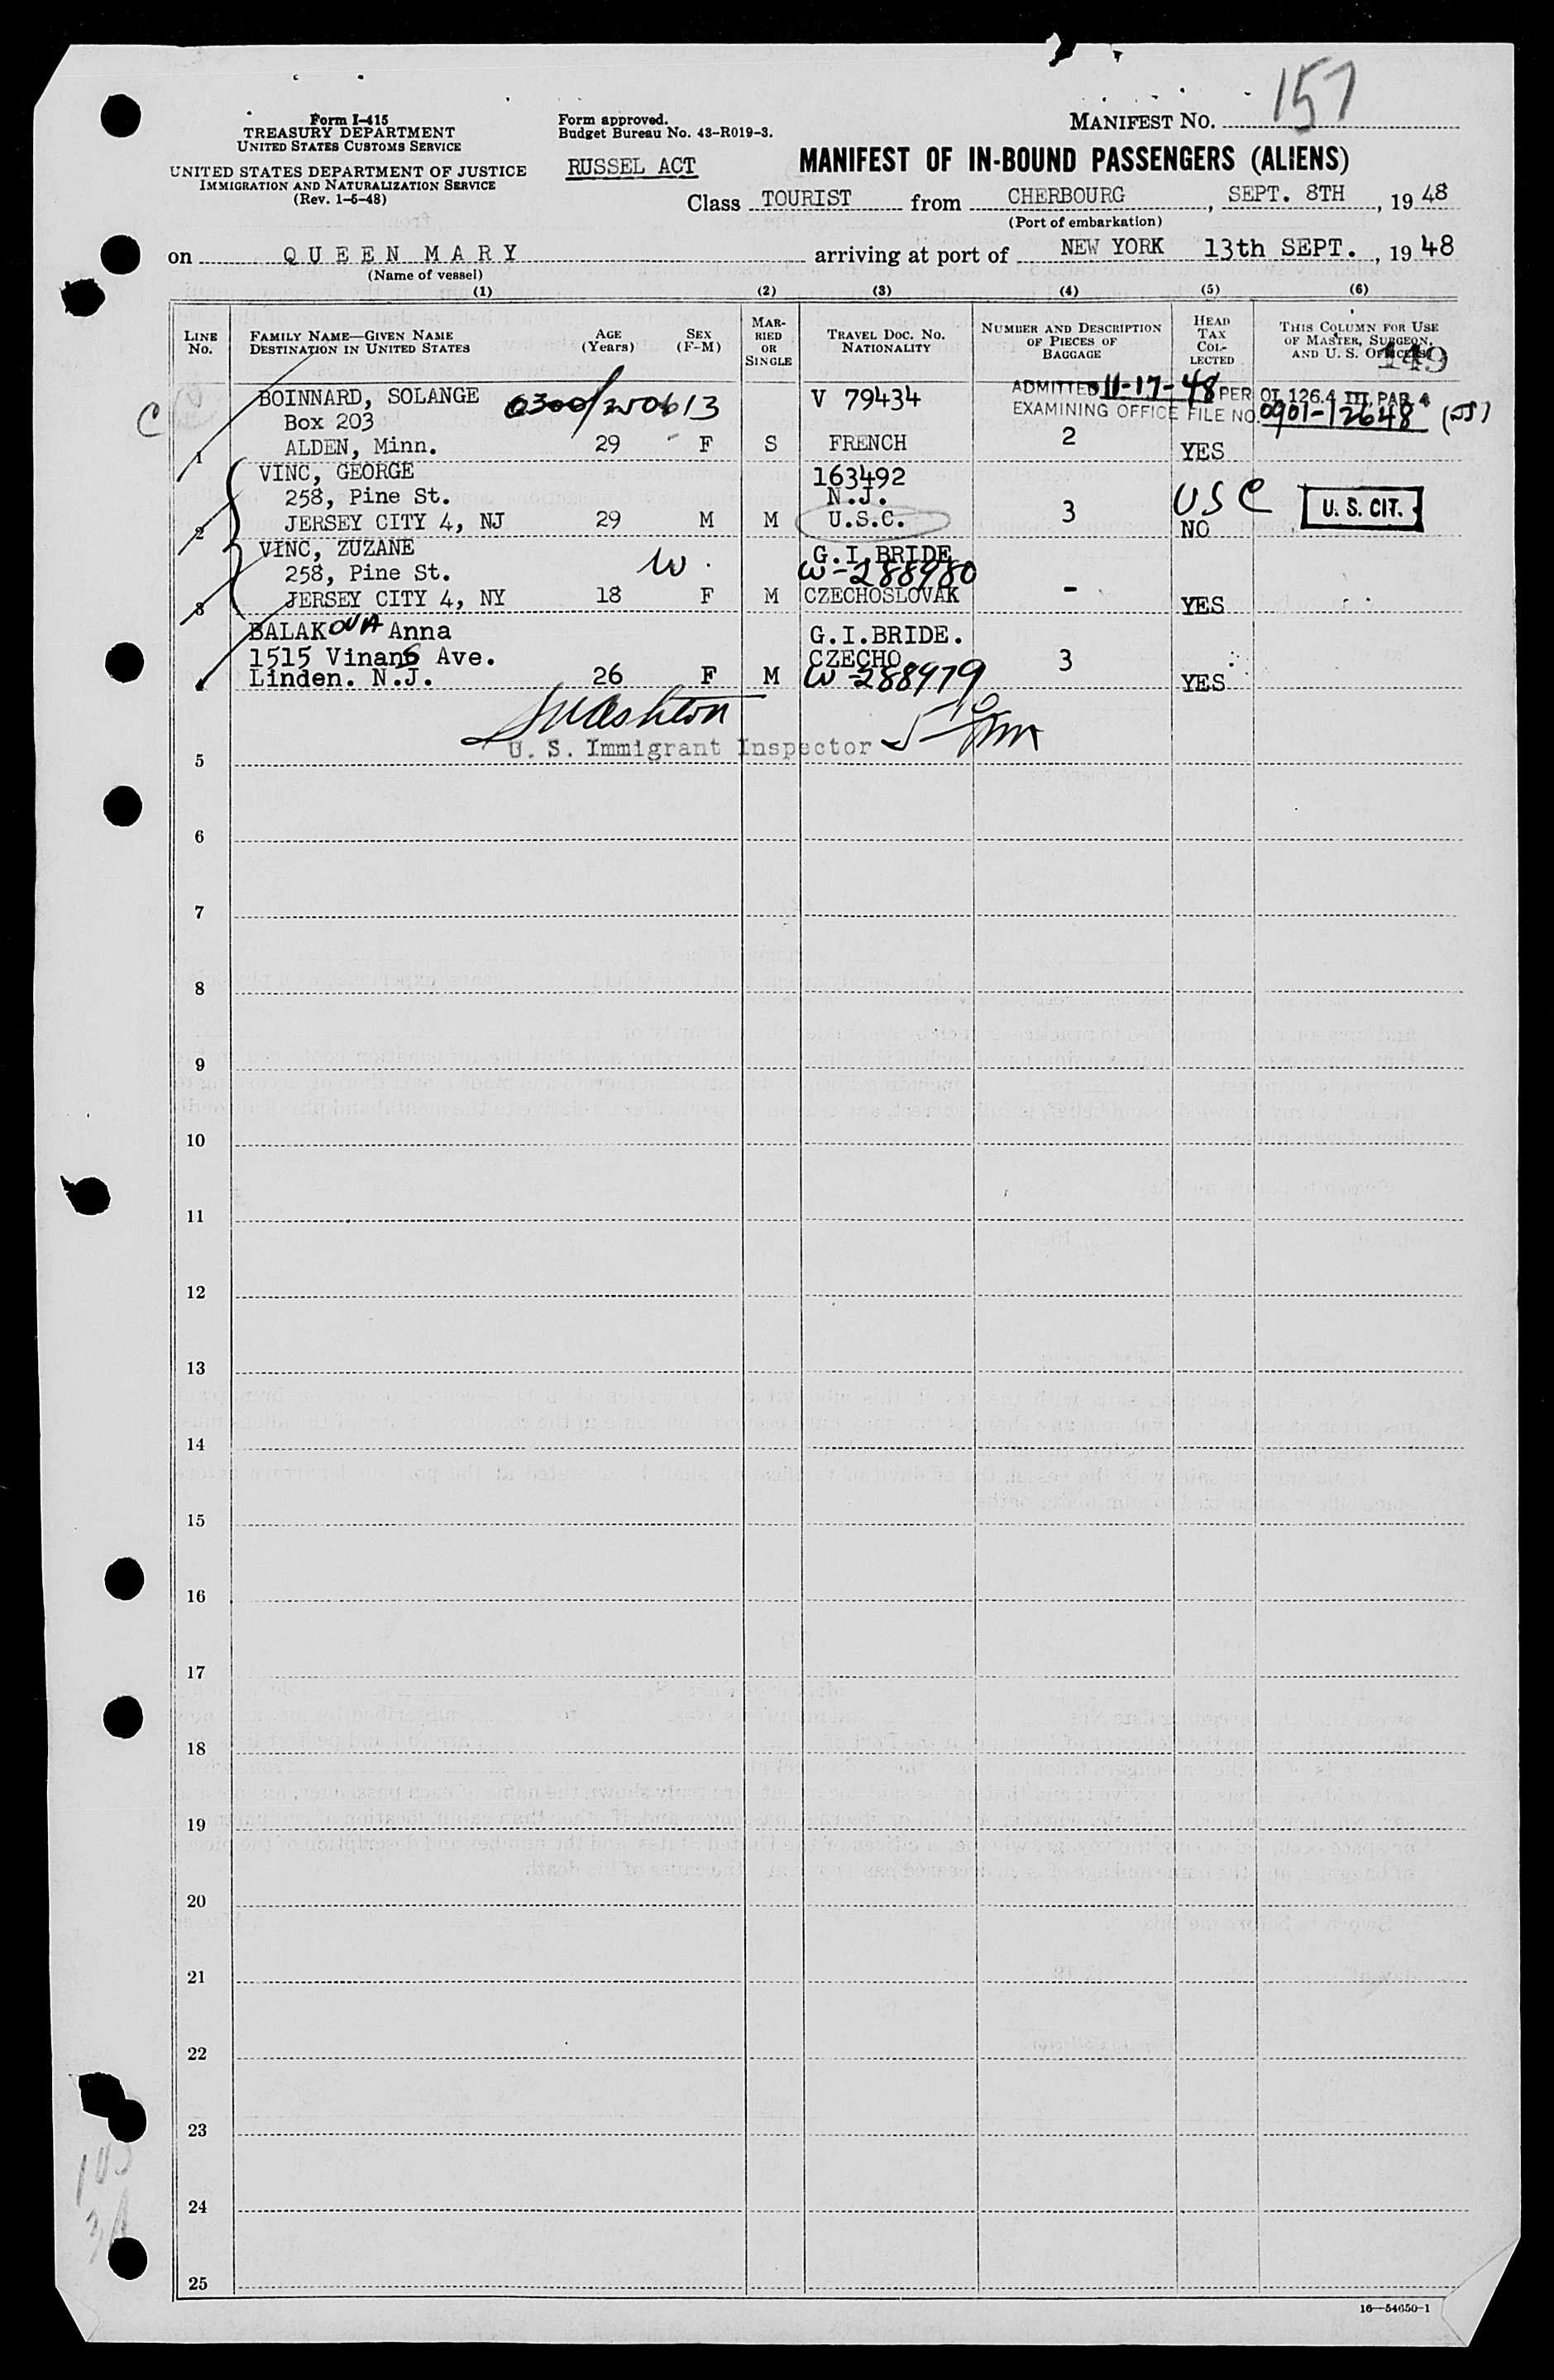 157
Form I-415
TREASURY DEPARTMENT
UNITED STATES CUSTOMS SERVICE
UNITED STATES DEPARTMENT OF JUSTICE
IMMIGRATION AND NATURALIZATION SERVICE
(Rev. 1-5-48)
Form approved.
Budget Bureau No. 43-R019-3.
RUSSEL ACT
MANIFEST NO.
MANIFEST OF IN-BOUND PASSENGERS (ALIENS)
Class TOURIST from CHERBOURG, SEPT. 8TH, 1948
(Port of embarkation)
on QUEEN MARY arriving at port of NEW YORK 13th SEPT., 1948
(Name of vessel)
(1) (2) (3) (4) (5) (6)
LINE NO.
FAMILY NAME—GIVEN NAME
DESTINATION IN UNITED STATES
AGE (Years)
SEX (F-M)
MARRIED OR SINGLE
TRAVEL DOC. NO. NATIONALITY
NUMBER AND DESCRIPTION OF PIECES OF BAGGAGE
HEAD TAX COLLECTED
THIS COLUMN FOR USE OF MASTER, SURGEON, AND U. S. OFFICERS
149
C
BOINNARD, SOLANGE V 79434 ADMITTED 11-17-48 PER OI 126.4 III PAR 4
Box 203 EXAMINING OFFICE FILE NO. 0901-12648 (JJ)
1 ALDEN, Minn. 29 F S FRENCH 2 YES
VINC, GEORGE 163492
258, Pine St. N.J. USC U. S. CIT.
2 JERSEY CITY 4, NJ 29 M M U.S.C. 3 NO
VINC, ZUZANE G.I.BRIDE
258, Pine St. W. W-288980
3 JERSEY CITY 4, NY 18 F M CZECHOSLOVAK - YES
BALAKOVA Anna G.I.BRIDE.
1515 Vinans Ave. CZECHO
4 Linden. N.J. 26 F M W-288979 3 YES
U. S. Immigrant Inspector
5
6
7
8
9
10
11
12
13
14
15
16
17
18
19
20
21
22
23
24
25
16—54650-1